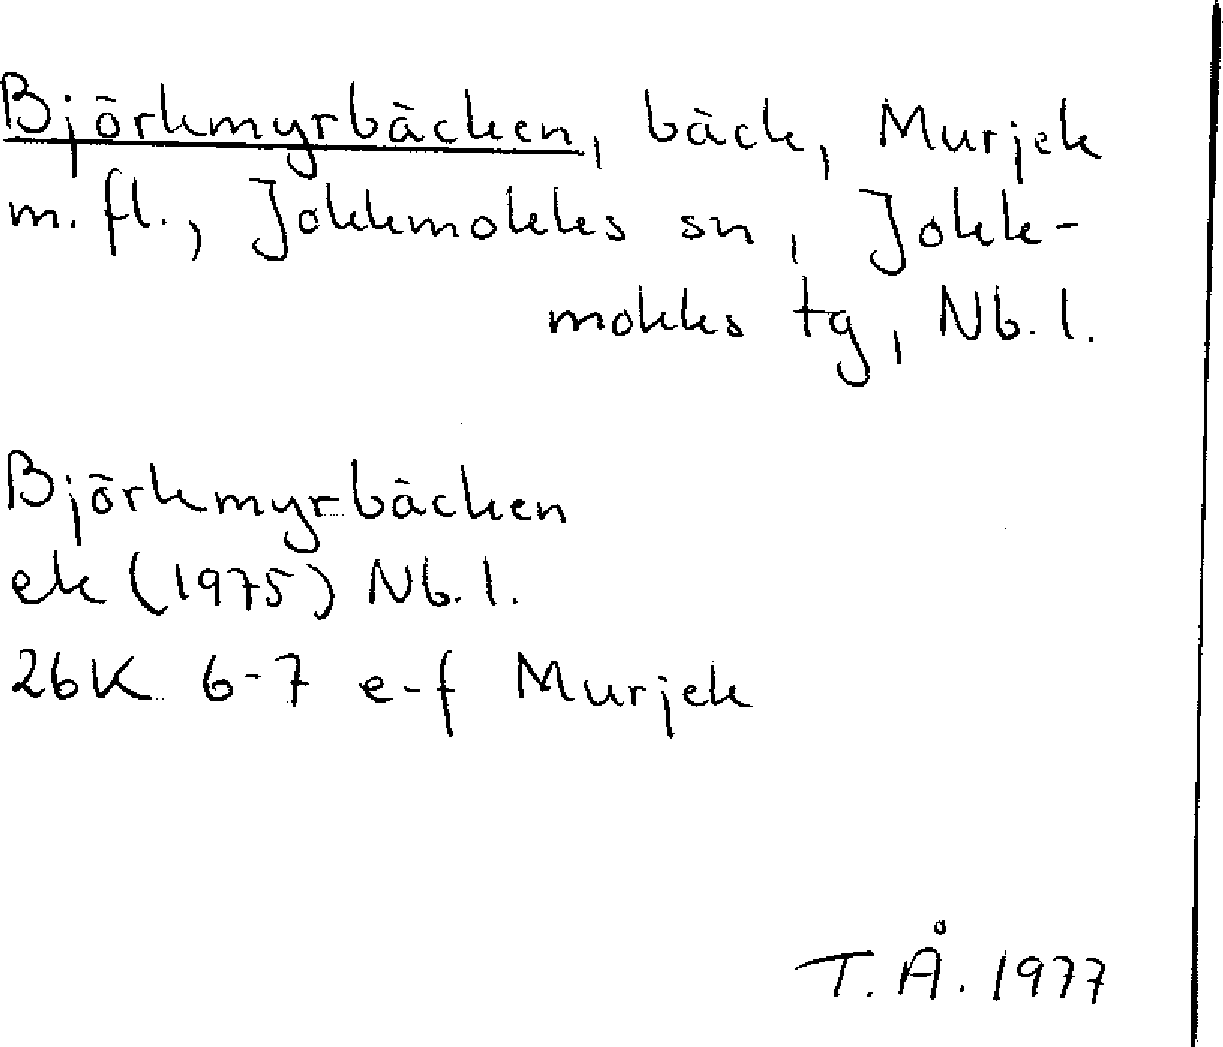 Björkmyrbäcken, bäck, Murjek
m.fl., Jokkmokks sn, Jokk-
mokks tg, Nb.l.
Björkmyrbäcken
ek (1975) Nb.l.
26K 6-7 e-f Murjek
T.Å. 1977